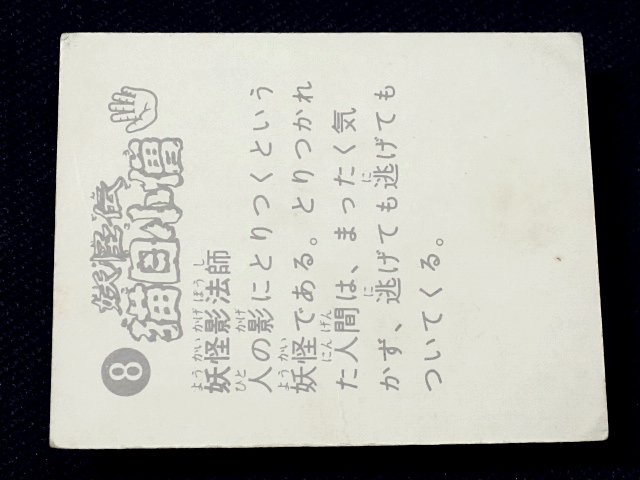 8
妖怪伝
猫目小僧
妖怪影法師
人の影にとりつくという
妖怪である。とりつかれ
た人間は、まったく気
かず、逃げても逃げても
ついてくる。